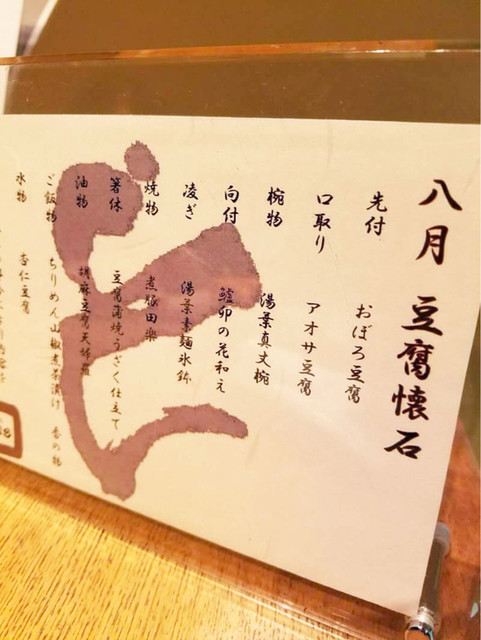 八月 豆腐懐石
先付 おぼろ豆腐
口取り アオサ豆腐
椀物 湯葉真丈椀
向付 鱧卯の花和え
凌ぎ 湯葉素麺氷鉢
焼物 煮豚田楽
箸休 豆腐蒲焼うざく仕立て
油物 胡麻豆腐天婦羅
ご飯物 ちりめん山椒煮茶漬け 香の物
水物 杏仁豆腐